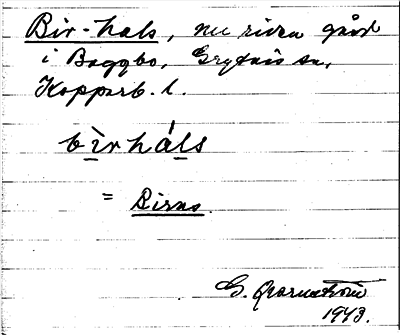 Bir-hals, nu riven gård
i Baggbo, Grytnäs sn,
Kopparb. l.
bìrháls
= Birns.
G.
1943.